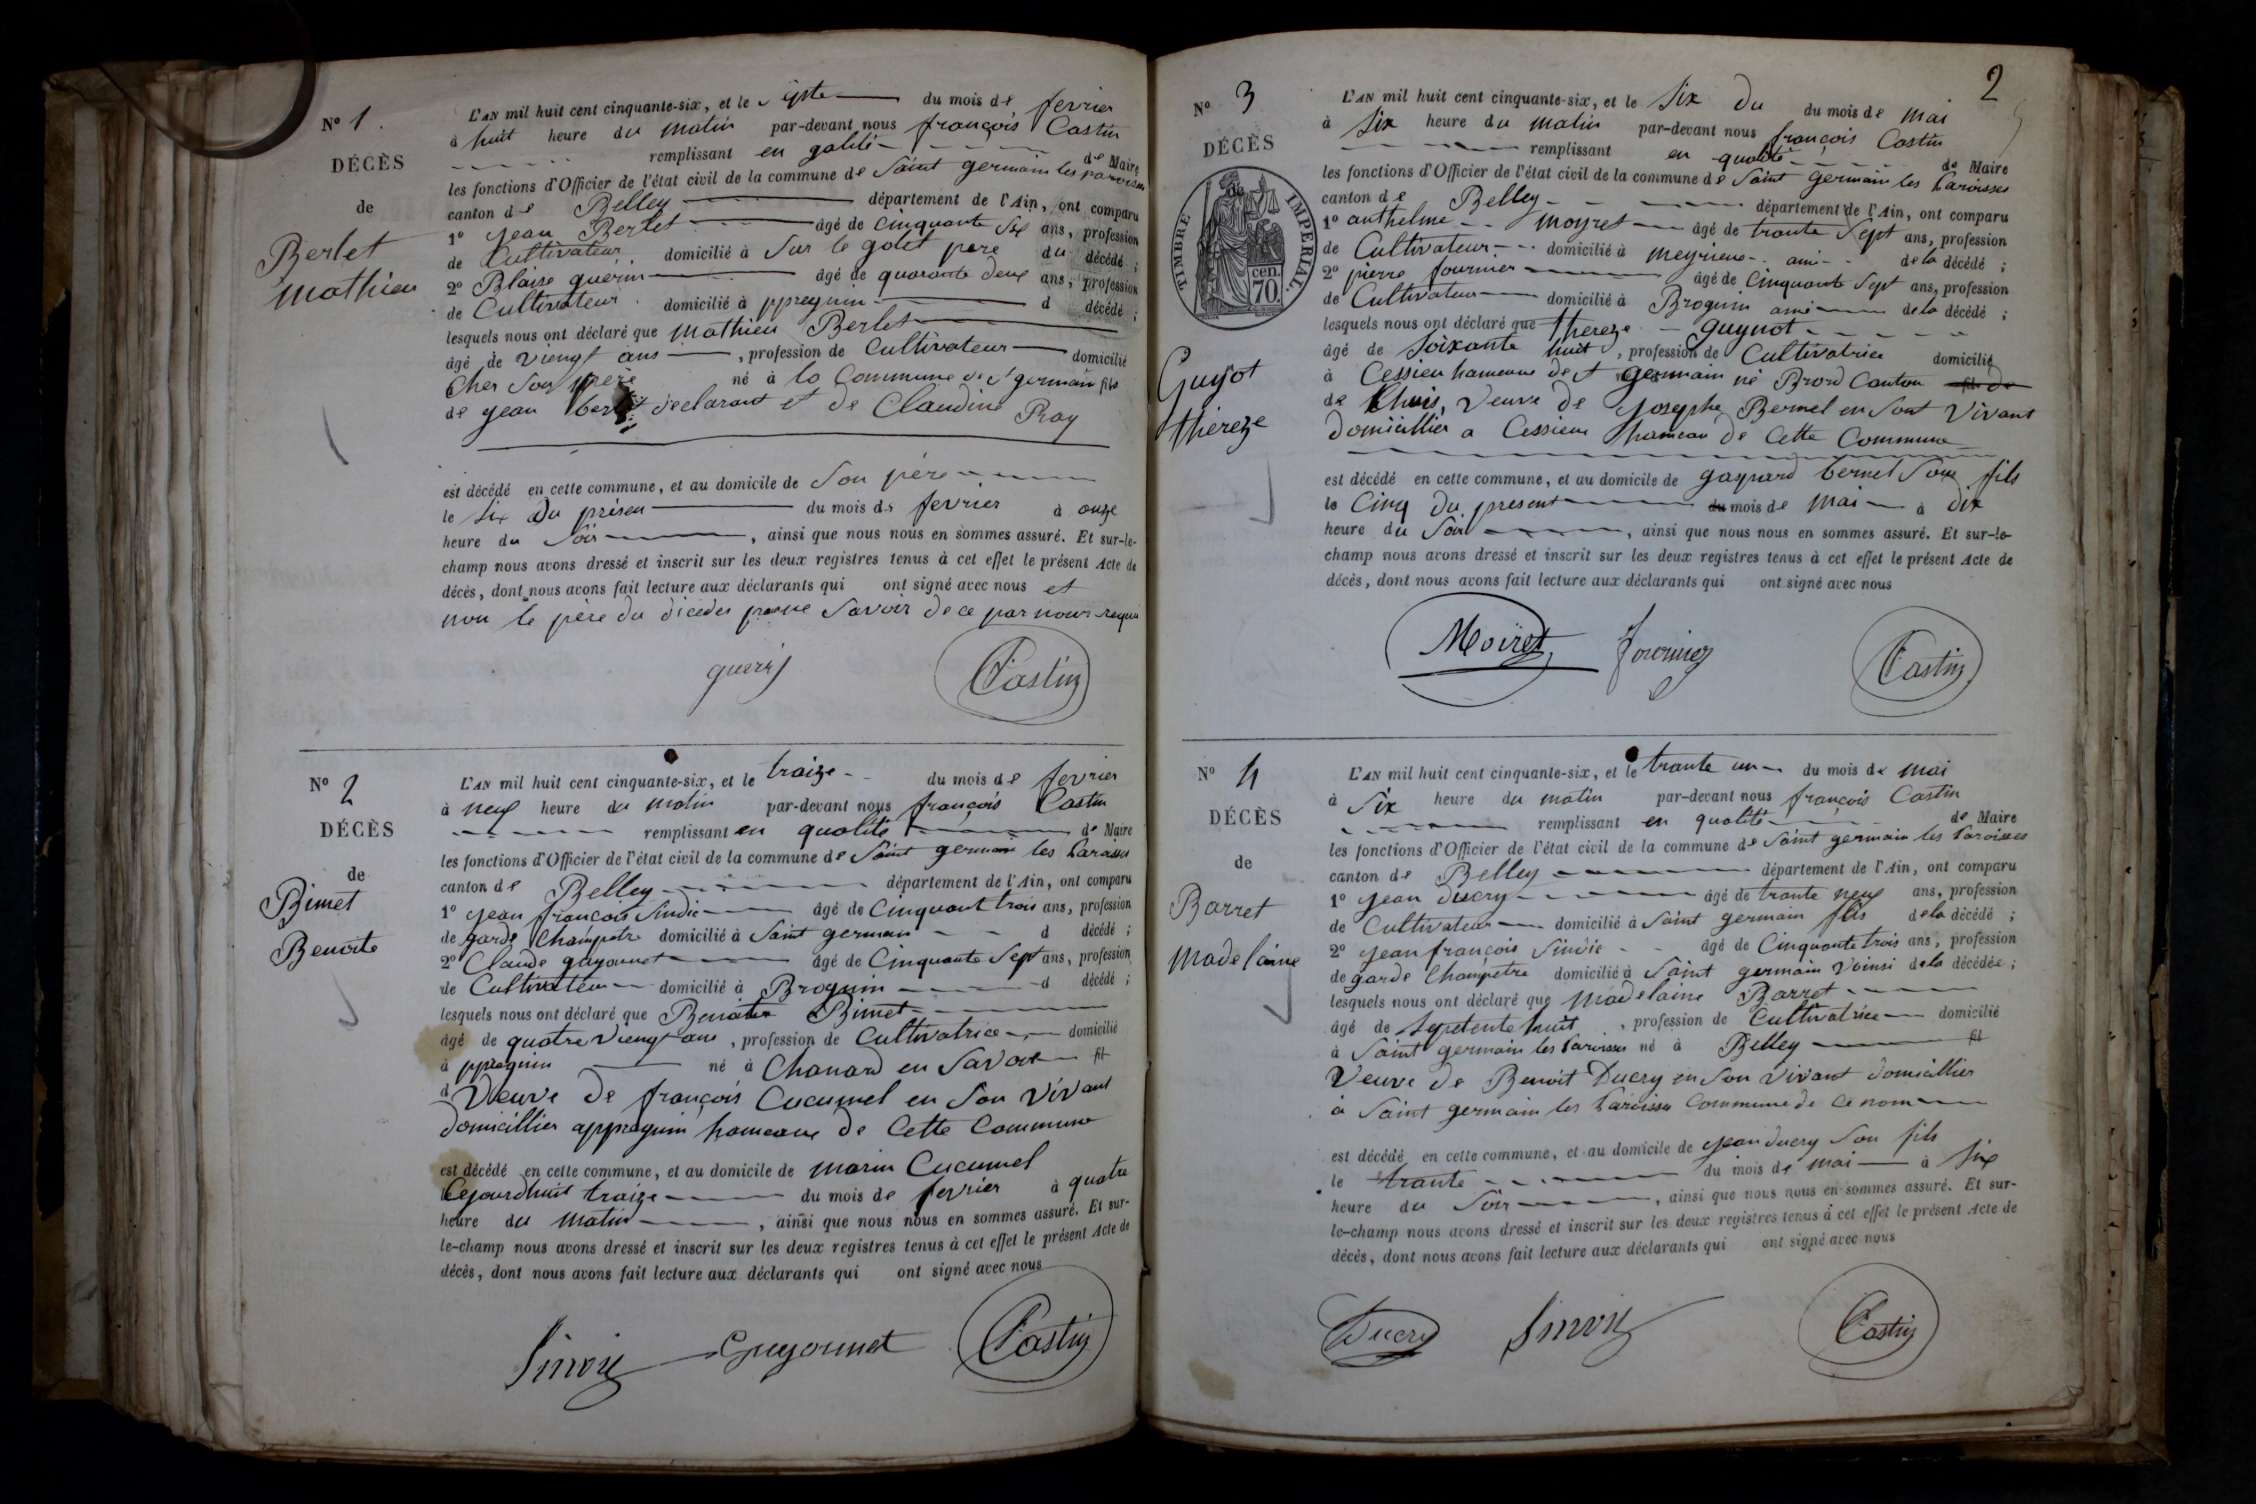 N° 1.
DÉCÈS
de
Berlet
Mathieu
L'AN mil huit cent cinquante-six, et le septe du mois de fevrier
à huit heure du matin par-devant nous françois Castin
remplissant en qalité de Maire
les fonctions d'Officier de l'état civil de la commune de Saint germain les paroisses
canton de Belley département de l'Ain, ont comparu
1° jean Berlet âgé de cinquante six ans, profession
de Cultivateur domicilié à Sur le golet pere du décédé ;
2° Blaise guérin âgé de quarante deux ans, profession
de Cultivateur domicilié à ppregnin d décédé ;
lesquels nous ont déclaré que Mathieu Berlet
âgé de viengt ans, profession de Cultivateur domicilié
Cher Son père né à la Commune de St germain fils
de jean berlet declarant et de Claudine Ray
est décédé en cette commune, et au domicile de Son père
le Six du présen du mois de fevrier à onze
heure du Soir, ainsi que nous nous en sommes assuré. Et sur-le-
champ nous avons dressé et inscrit sur les deux registres tenus à cet effet le présent Acte de
décès, dont nous avons fait lecture aux déclarants qui ont signé avec nous et
non le père du dicedes Savoir de ce par nous requi
guerin
Castin
N° 2
DÉCÈS
de
Bimet
Benoite
L'AN mil huit cent cinquante-six, et le traize du mois de fevrier
à neuf heure du matin par-devant nous françois Castin
remplissant en qualité de Maire
les fonctions d'Officier de l'état civil de la commune de Saint germain les Paroisses
canton de Belley département de l'Ain, ont comparu
1° jean françois Sindic âgé de Cinquant trois ans, profession
de garde Champetre domicilié à Saint germain d décédé ;
2° Claude guyonnet âgé de Cinquante Sept ans, profession
de Cultivateur domicilié à Brognin d décédé ;
lesquels nous ont déclaré que Benoite Bimet
âgé de quatre viengt ans, profession de Cultivatrice domicilié
à ppregnin né à Chanard en Savoie fil
d Veuve de françois Cucumel en Son Vivant
domicillier appregnin hameaux de Cette Commune
est décédé en cette commune, et au domicile de Marin Cucumel
le Cejourdhuit traize du mois de fevrier à quatre
heure du Matin, ainsi que nous nous en sommes assuré. Et sur-
le-champ nous avons dressé et inscrit sur les deux registres tenus à cet effet le présent Acte de
décès, dont nous avons fait lecture aux déclarants qui ont signé avec nous
Sindic
Guyonnet
Castin
2
N° 3
DÉCÈS
de
TIMBRE IMPERIAL.
70 cen.
Guyot
thereze
L'AN mil huit cent cinquante-six, et le Six du du mois de mai
à Six heure du matin par-devant nous françois Castin
remplissant en qualité de Maire
les fonctions d'Officier de l'état civil de la commune de Saint germain les Paroisses
canton de Belley département de l'Ain, ont comparu
1° anthelme Moyret âgé de trante Sept ans, profession
de Cultivateur domicilié à meyrieux ami de la décédé ;
2° pierre fournier âgé de Cinquante Sept ans, profession
de Cultivateur domicilié à Brognin ami de la décédé ;
lesquels nous ont déclaré que thereze Guynot
âgé de Soixante huit, profession de Cultivatrice domicilié
à Cessieu hameaux de St germain né Brord Canton fil de
de Lhuis, Veuve de Josephe Bernel en Sont Vivant
Domicillier a Cessieux hameau de Cette Commune
est décédé en cette commune, et au domicile de gaspard bernel Son fils
le Cinq du present du mois de Mai à dix
heure du Soir, ainsi que nous nous en sommes assuré. Et sur-le-
champ nous avons dressé et inscrit sur les deux registres tenus à cet effet le présent Acte de
décès, dont nous avons fait lecture aux déclarants qui ont signé avec nous
Moiret
fournier
Castin
N° 4
DÉCÈS
de
Barret
Madelainne
L'AN mil huit cent cinquante-six, et le trante un du mois de mai
à Six heure du matin par-devant nous françois Castin
remplissant en qualité de Maire
les fonctions d'Officier de l'état civil de la commune de Saint germain les Paroisses
canton de Belley département de l'Ain, ont comparu
1° jean ducry âgé de trante neuf ans, profession
de Cultivateur domicilié à Saint germain fils de la décédé ;
2° jean françois Sindic âgé de Cinquante trois ans, profession
de garde Champetre domicilié à Saint germain Voinsi de la décédée ;
lesquels nous ont déclaré que Madelaine Barret
âgé de Septente huit, profession de Cultivatrice domicilié
à Saint germain les Paroisses né à Belley fil
Veuve de Benoit Ducry en Son Vivant domicillier
à Saint germain les Paroisses Commune de ce nom
est décédé en cette commune, et au domicile de jean ducry Son fils
le trante du mois de mai à Six
heure du Soir, ainsi que nous nous en sommes assuré. Et sur-
le-champ nous avons dressé et inscrit sur les deux registres tenus à cet effet le présent Acte de
décès, dont nous avons fait lecture aux déclarants qui ont signé avec nous
Ducry
Sindic
Castin